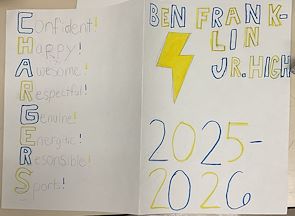 Confident!
Happy!
Awesome!
Respectful!
Genuine!
Energetic!
Resonsible!
Sports!
BEN FRANK-
LIN
JR. HIGH
2025-
2026